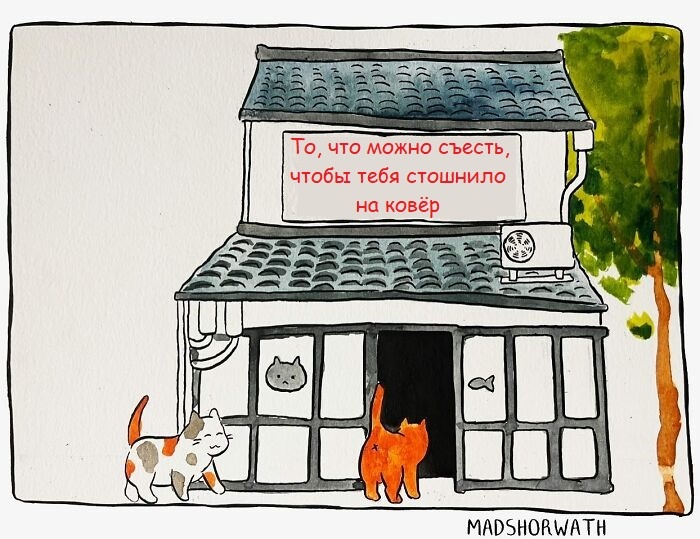 То, что можно съесть,
чтобы тебя стошнило
на ковёр
MADSHORWATH